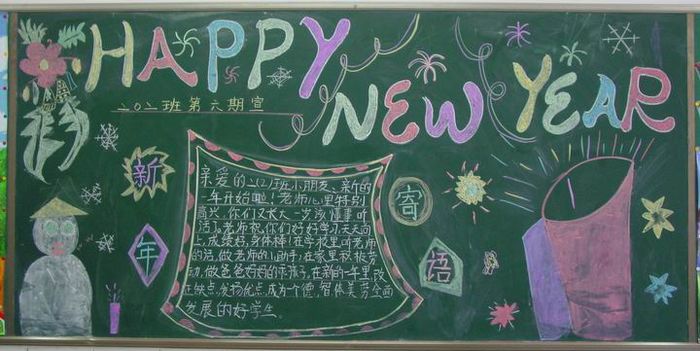 HAPPY NEW YEAR
202班第六期宣
新年
寄语
亲爱的202班小朋友、新的
一年开始啦!老师心里特别
高兴,你们又长大一岁该懂事听
话了。老师祝,你们好好学习天天向
上,成绩好,身体棒!在学校里听老师
的话,做老师的小助手;在家里积极劳
动,做爸爸妈妈的乖孩子,在新的一年里,改
正缺点,发扬优点,成为一个德,智体美劳全面
发展的好学生。